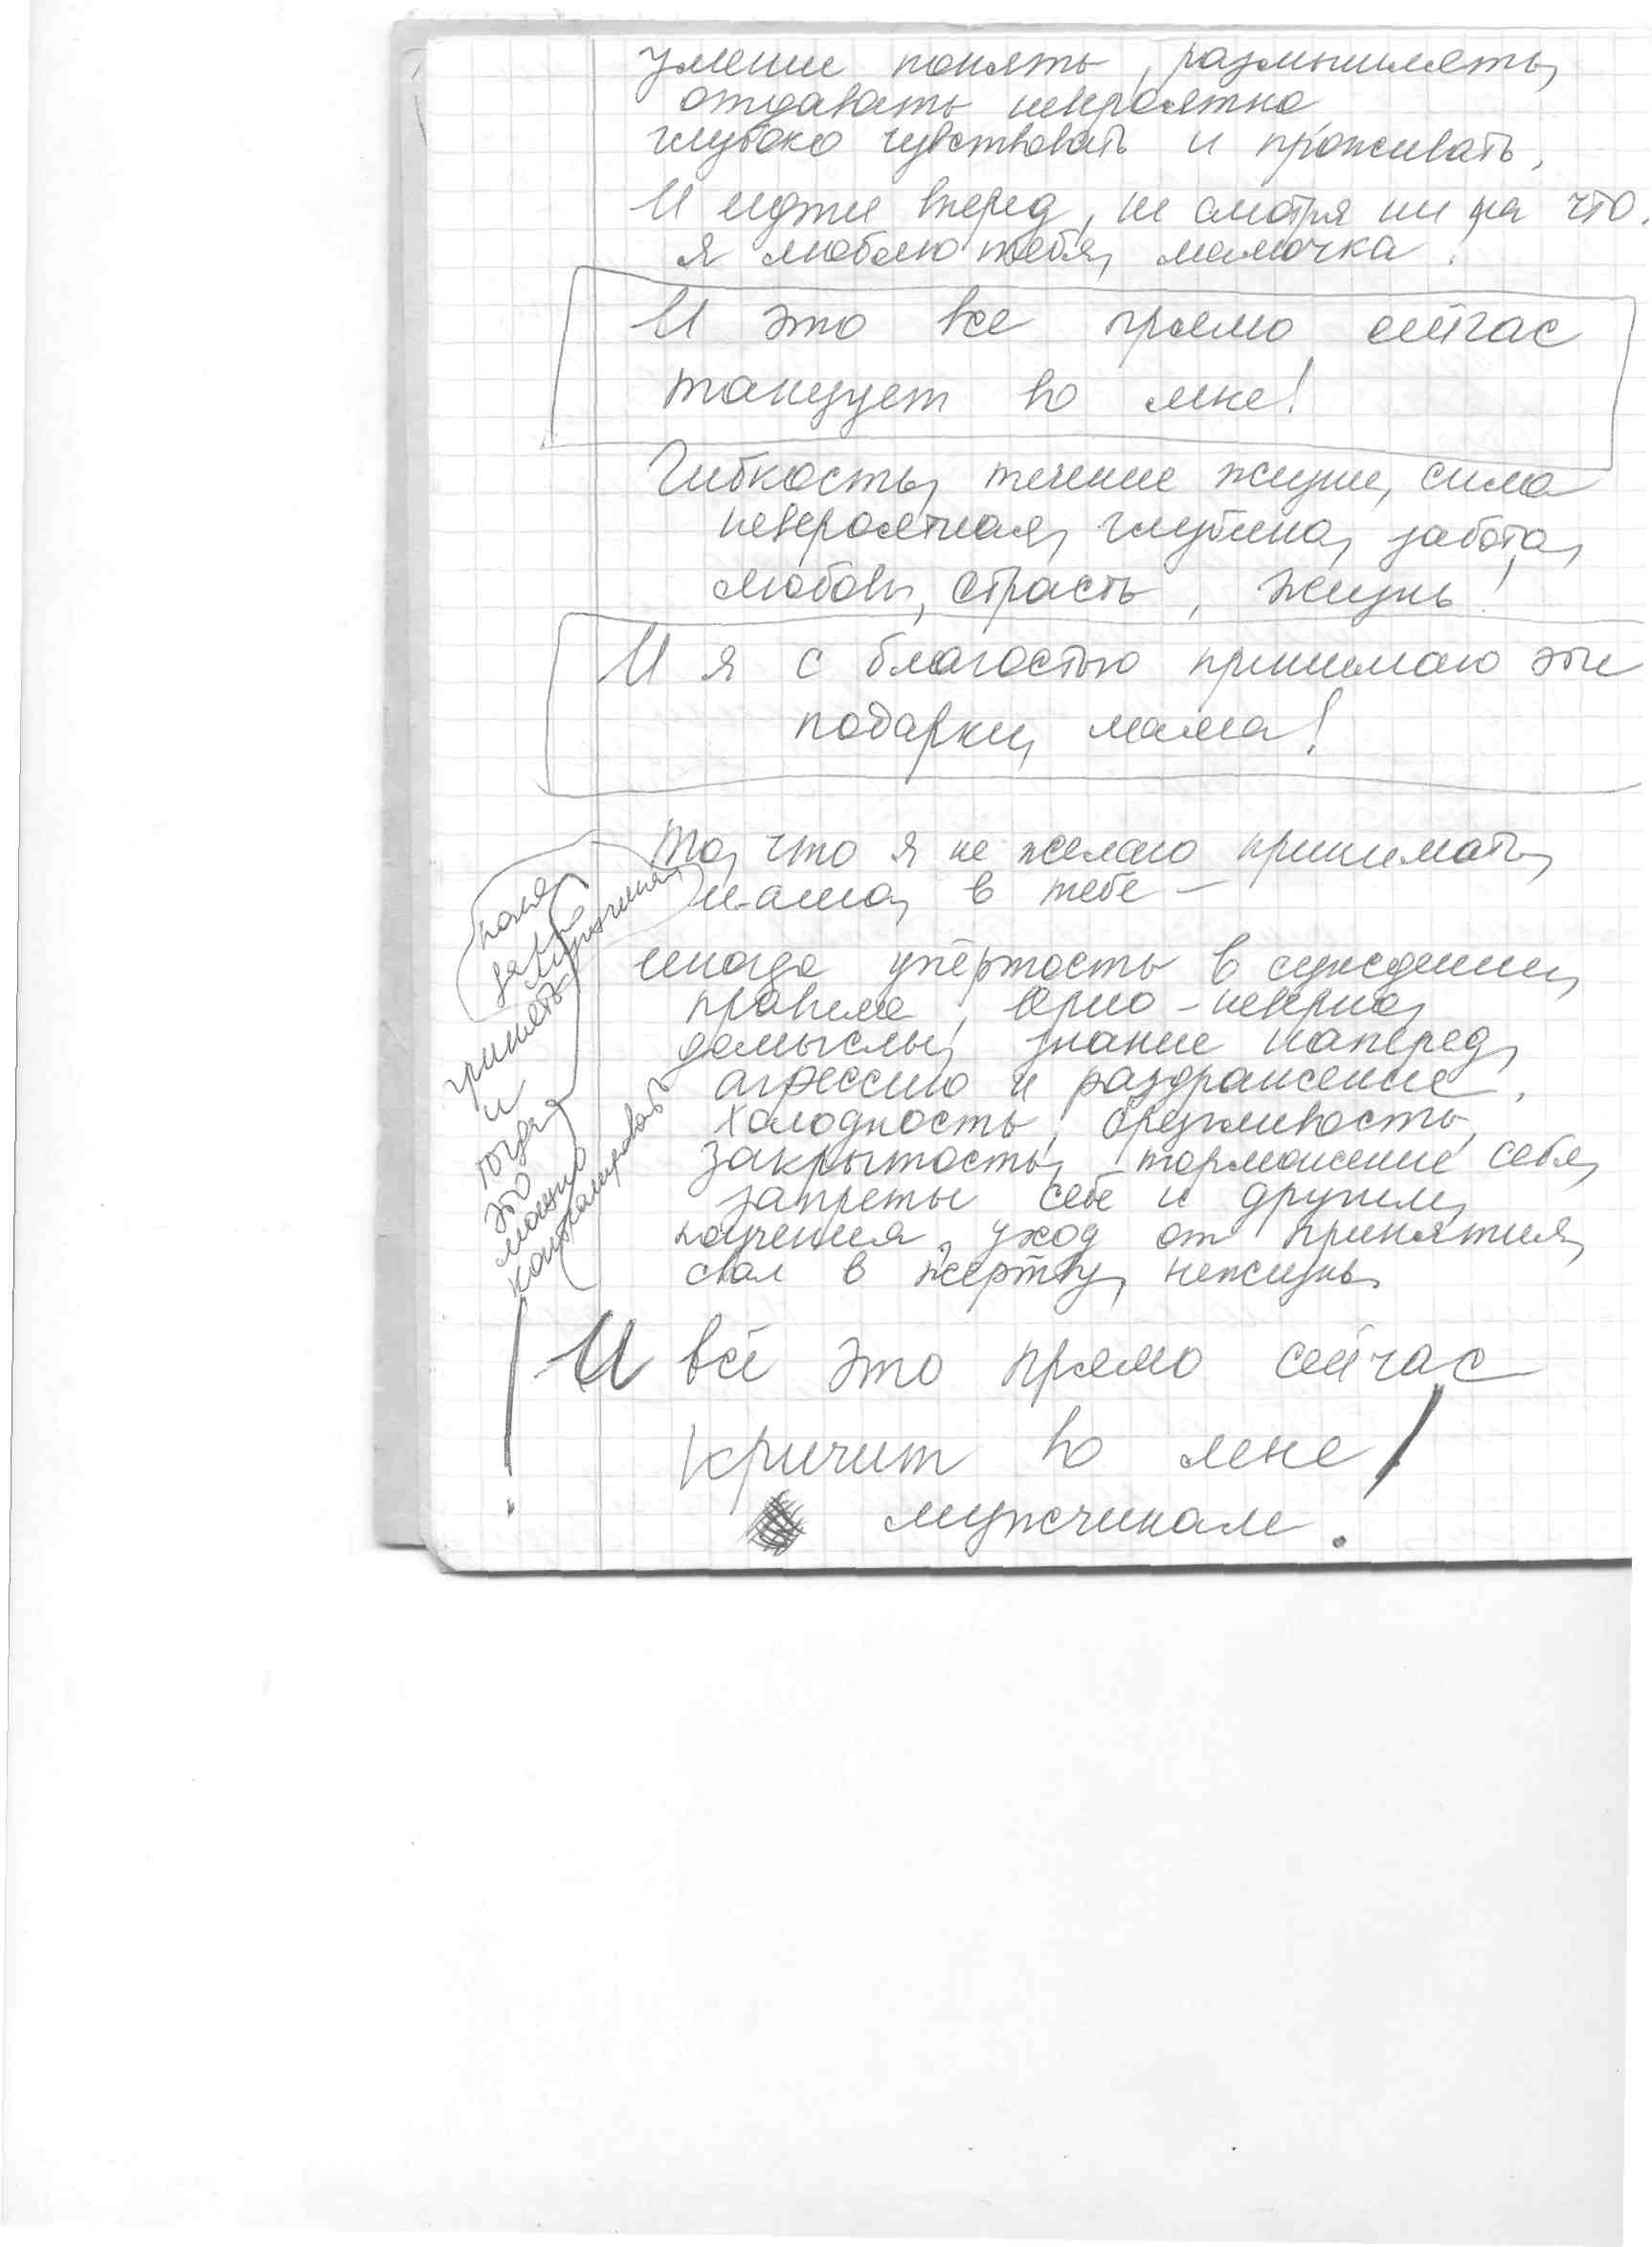 умение понять, размышлять,
отдавать невероятно
глубоко чувствовать и проживать,
И идти вперед, не смотря ни на что.
я люблю тебя, мамочка!
И это все прямо сейчас
танцует во мне!
Гибкость, течение жизни, сила
невероятная, глубина, забота,
любовь, страсть, жизнь!
И я с благостью принимаю эти
подарки, мама!
То, что я не желаю принимать,
мама, в тебе –
иногда упёртость в суждении,
правила, верно - неверно,
домыслы, знание наперед,
агрессию и раздражение,
холодность, брезгливость,
закрытость, торможение себя,
запреты себе и другим,
поучения, уход от принятия,
свал в жертву, нежизнь.
И всё это прямо сейчас
кричит во мне!
мужчинам.
принять
и
тогда
это
можно